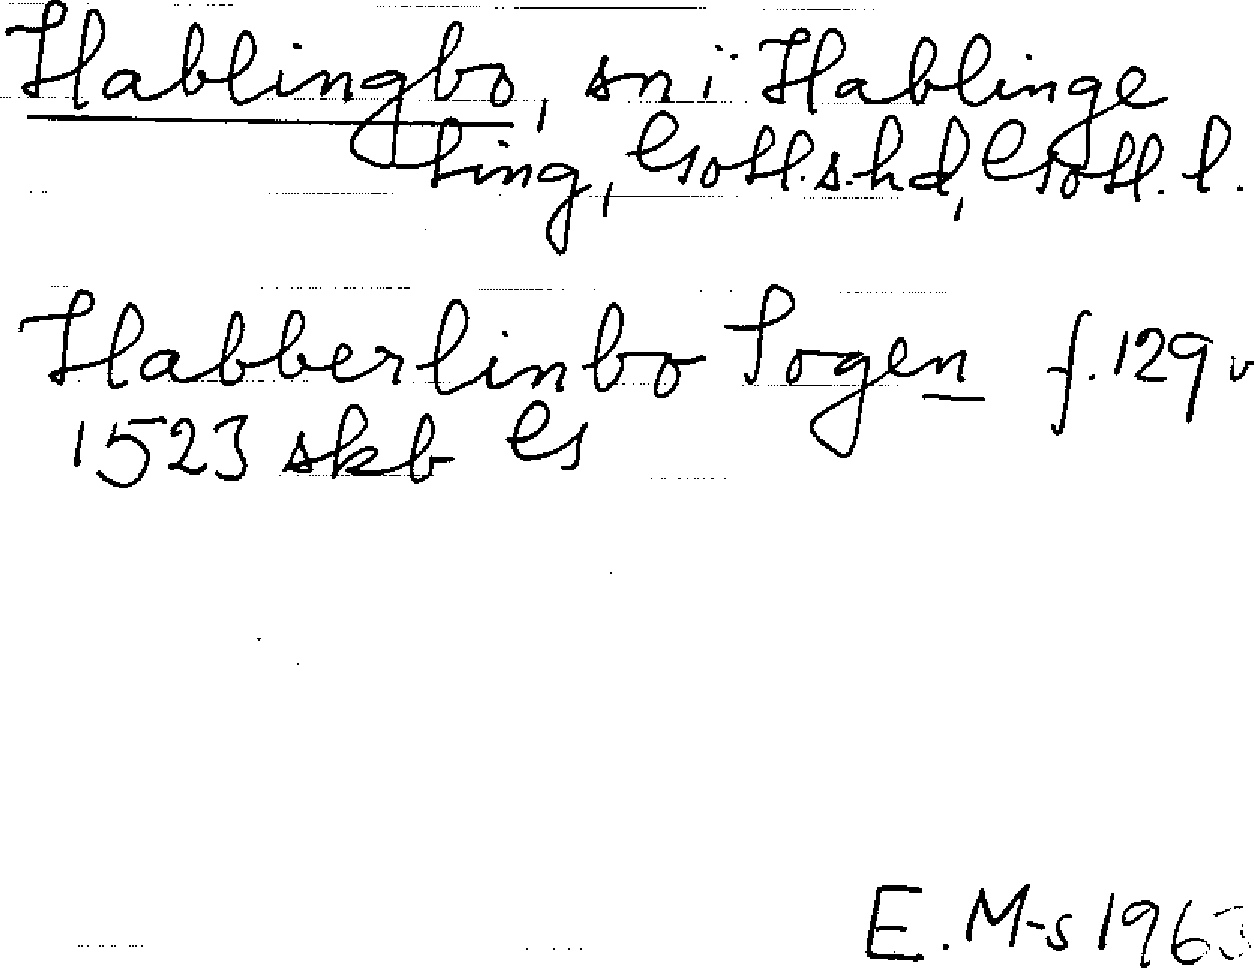 Hablingbo, sn i Hablinge
ting, Gotl.s.hd, Gotl. l.
Habberlinbo Sogen f. 129 v
1523 skb G
E. M-s 1963